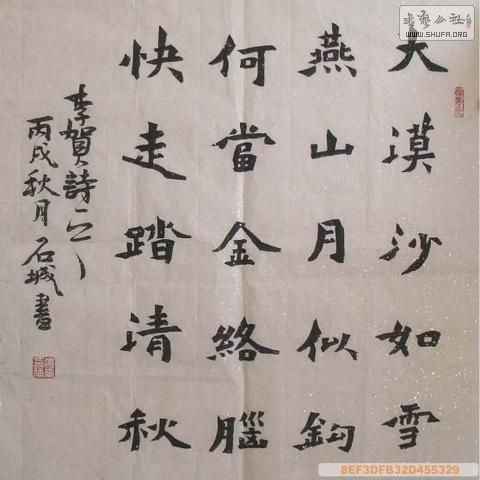 大漠沙如雪
燕山月似鉤
何當金絡腦
快走踏清秋
李賀詩一
丙戌秋月石城書
書藝公社
www.SHUFA.ORG
8EF3DFB32D455329